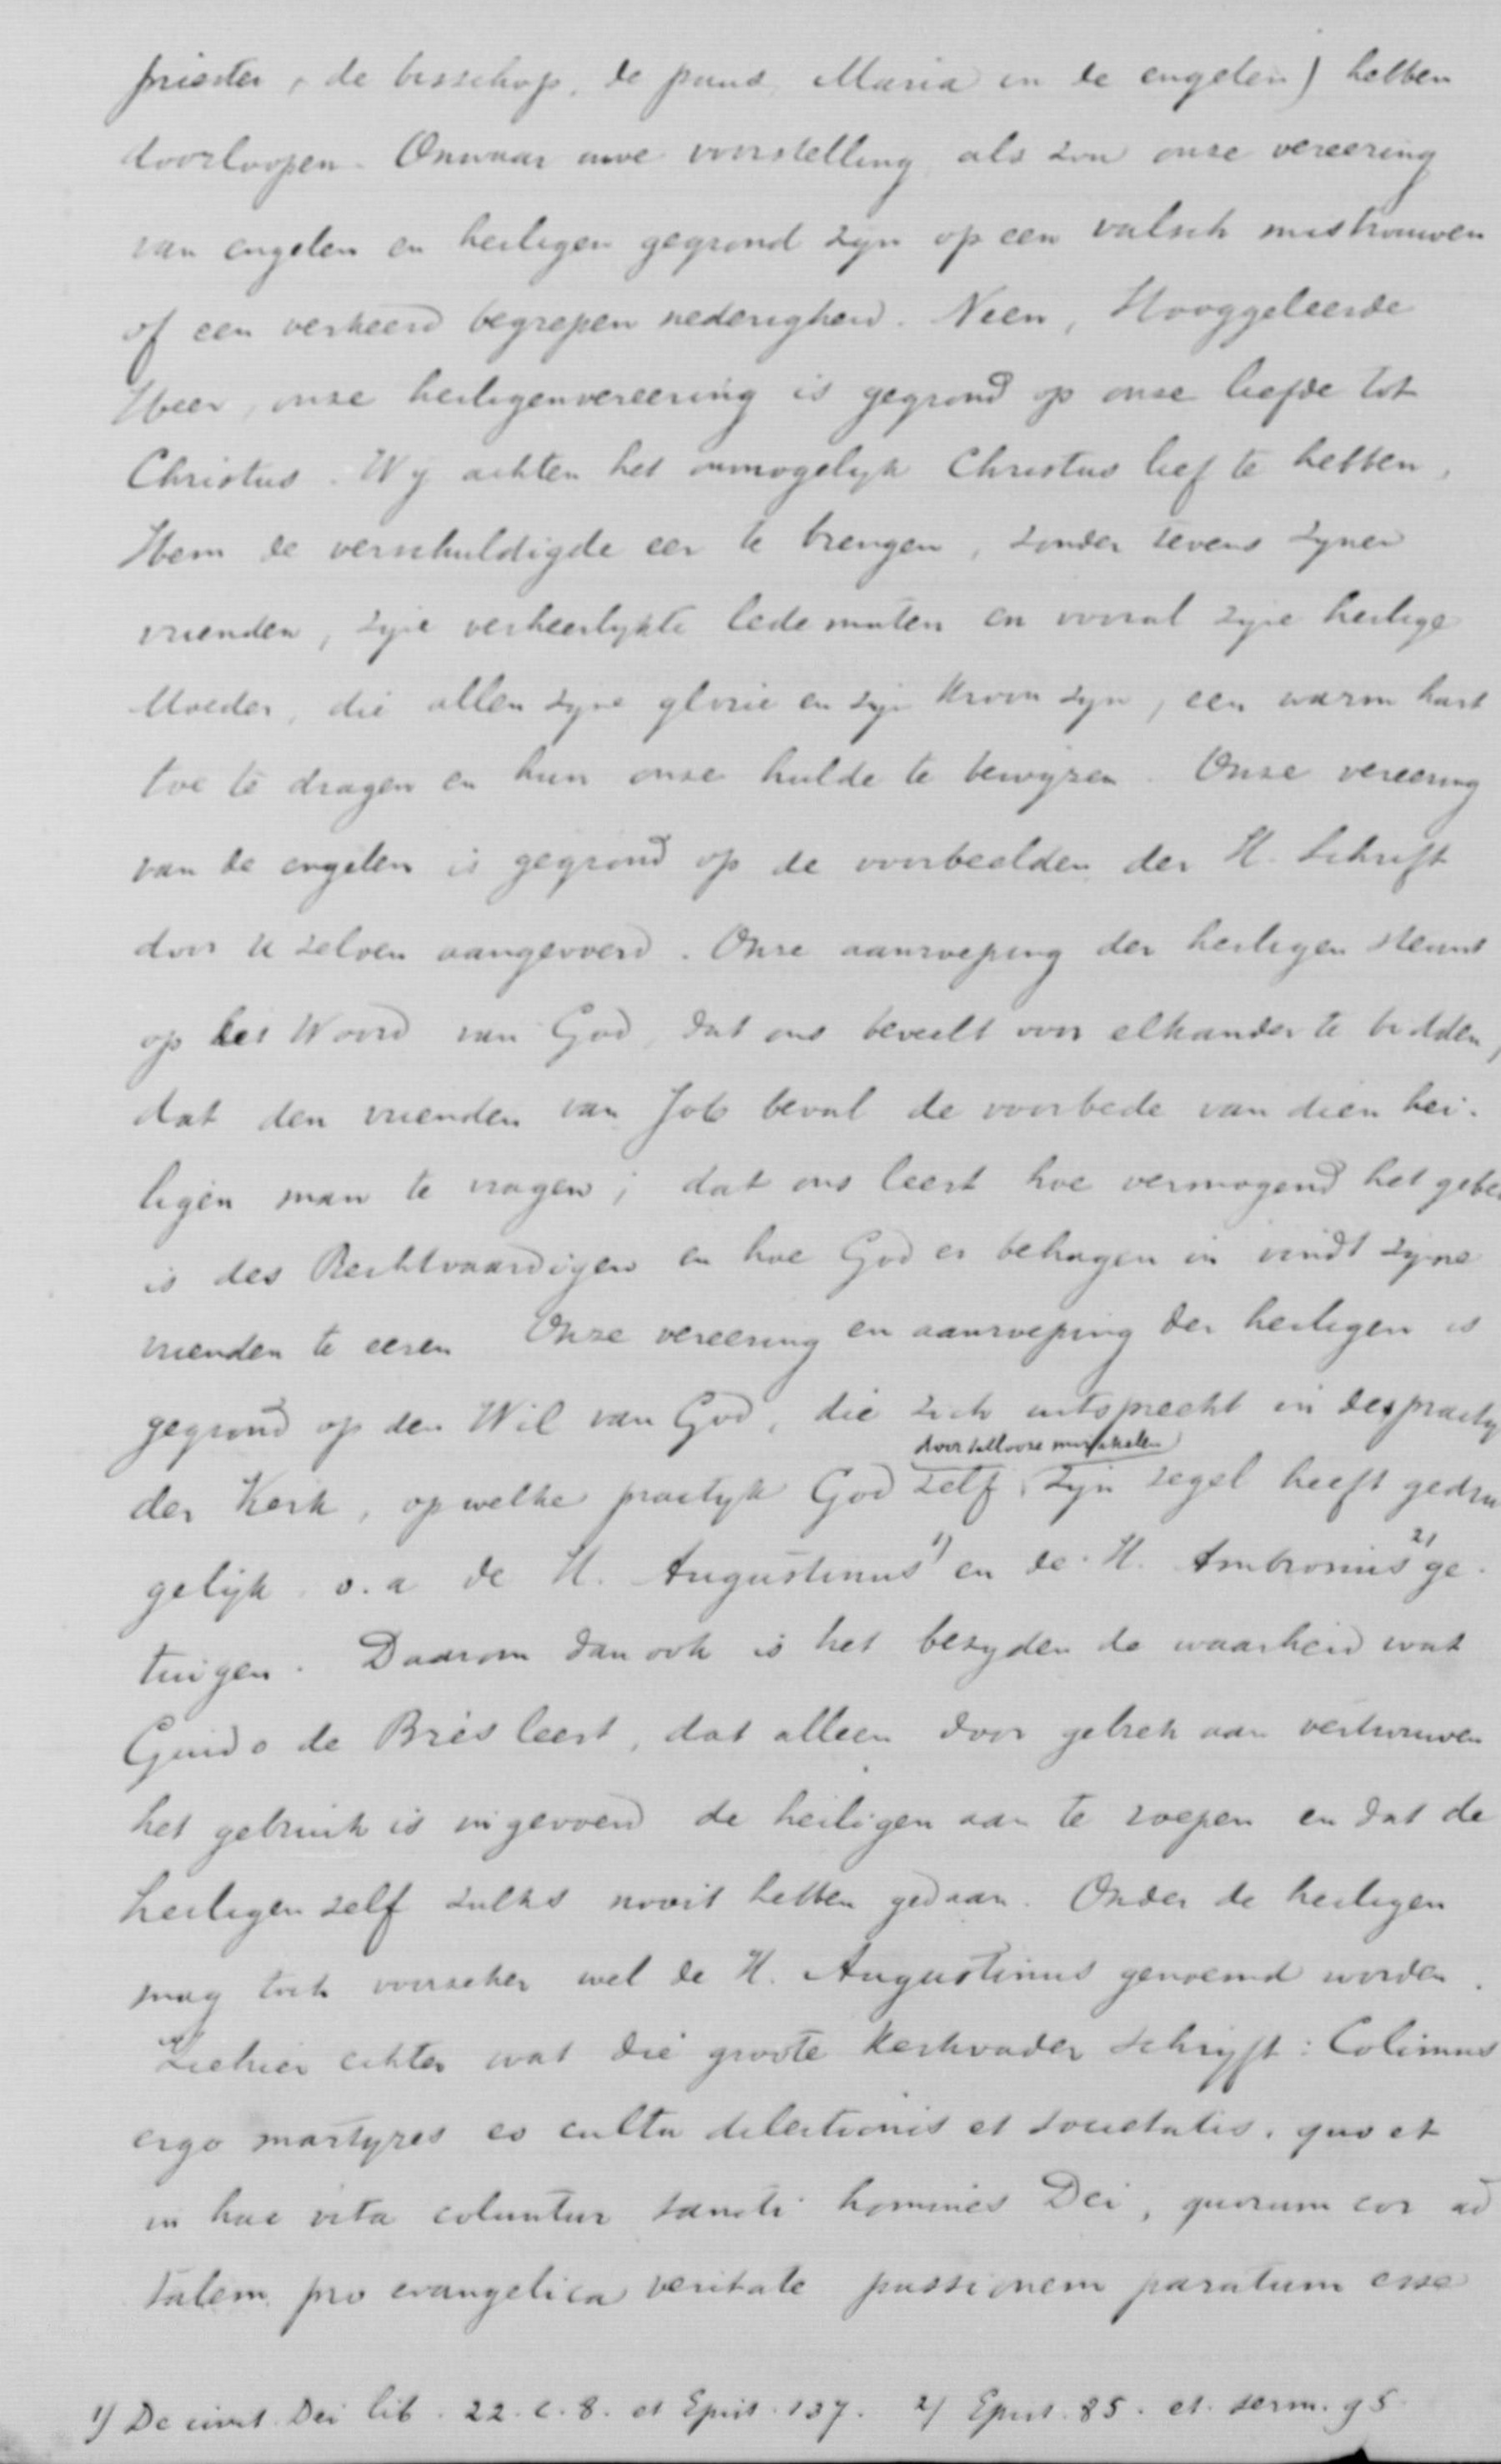 priester, de bisschop, de paus, Maria en de engelen) hebben
doorloopen. Onwaar uwe voorstelling als zou onze vereering
van engelen en heiligen gegrond zyn op een valsch mistrouwen
of een verkeerd begrepen nederigheid. Neen, Hooggeleerde
Heer, onze heiligenvereering is gegrond op onze liefde tot
Christus. Wy achten het onmogelyk Christus lief te hebben,
Hem de verschuldigde eer te brengen, zonder tevens zynen
vrienden, zyne verheerlykte ledematen en vooral zyne heilige
Moeder, die allen zyne glorie en zyn kroon zyn, een warm hart
toe te dragen en hun onze hulde te bewyzen. Onze vereering
van de engelen is gegrond op de voorbeelden der H. Schrift
door U zelven aangevoerd. Onze aanroeping der heiligen steunt
op het Woord van God, dat ons beveelt voor elkander te bidden,
dat den vrienden van Job beval de voorbede van dien hei-
ligen man te vragen; dat ons leert hoe vermogend het gebe
is des Rechtvaardigen en hoe God er behagen in vindt zyne
vrienden te eeren. Onze vereering en aanroeping der heiligen is
gegrond op den Wil van God, die zich uitspreekt in de practy
door tallooze mirakelen
der Kerk, op welke practyk God zelf zyn zegel heeft gedru
gelyk o.a de H. Augustinus 1) en de H. Ambrosius 2) ge-
tuigen. Daarom dan ook is het bezyden de waarheid wat
Guido de Brès leert, dat alleen door gebrek aan vertrouwen
het gebruik is ingevoerd de heiligen aan te roepen en dat de
heiligen zelf zulks nooit hebben gedaan. Onder de heiligen
mag toch voorzeker wel de H. Augustinus genoemd worden.
Ziehier echter wat die groote Kerkvader schryft: Colimus
ergo martyres eo cultu dilectionis et societatis, quo et
in hac vita coluntur sancti homines Dei, quorum cor ad
talem pro evangelica veritate passionem paratum esse
1) De civit. Dei lib. 22. c. 8. et Epist. 137. 2) Epist. 85. et. serm. 95.